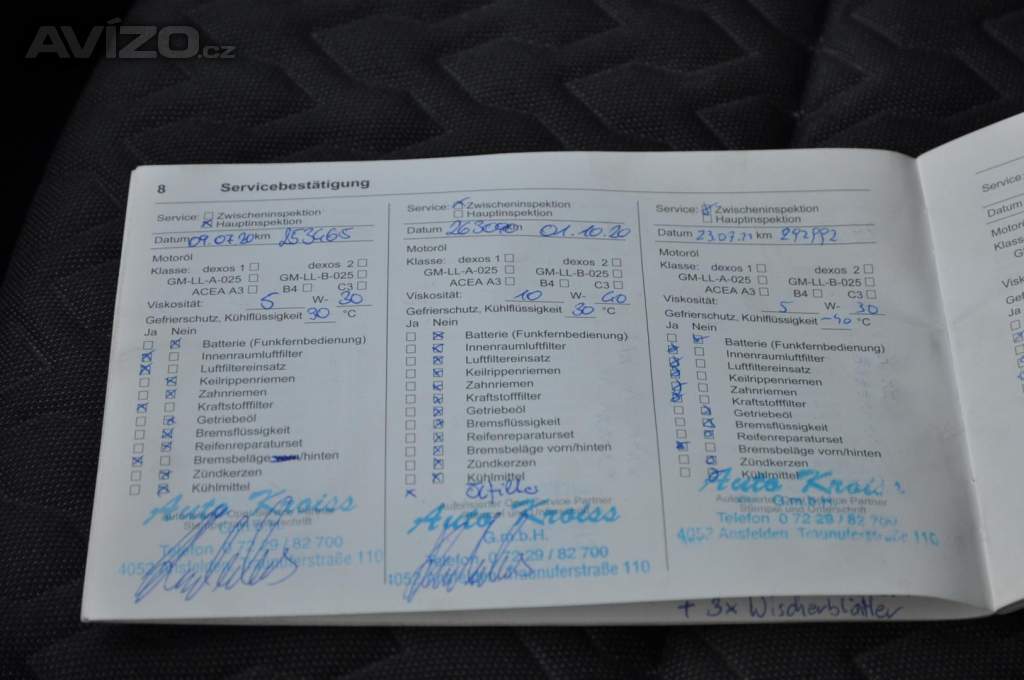 AVÍZO.cz
8 Servicebestätigung
Service: Zwischeninspektion
Hauptinspektion
Datum 09.07.20 km 253465
Motoröl
Klasse: dexos 1 dexos 2
GM-LL-A-025 GM-LL-B-025
ACEA A3 B4 C3
Viskosität: 5 W- 30
Gefrierschutz, Kühlflüssigkeit 30 °C
Ja Nein
Batterie (Funkfernbedienung)
Innenraumluftfilter
Luftfiltereinsatz
Keilrippenriemen
Zahnriemen
Kraftstofffilter
Getriebeöl
Bremsflüssigkeit
Reifenreparaturset
Bremsbeläge vorn/hinten
Zündkerzen
Kühlmittel
Auto Kroiss
Telefon 0 72 29 / 82 700
4052 Ansfelden Traunuferstraße 110
Service: Zwischeninspektion
Hauptinspektion
Datum km 01.10.20
Motoröl
Klasse: dexos 1 dexos 2
GM-LL-A-025 GM-LL-B-025
ACEA A3 B4 C3
Viskosität: 10 W- 40
Gefrierschutz, Kühlflüssigkeit 30 °C
Ja Nein
Batterie (Funkfernbedienung)
Innenraumluftfilter
Luftfiltereinsatz
Keilrippenriemen
Zahnriemen
Kraftstofffilter
Getriebeöl
Bremsflüssigkeit
Reifenreparaturset
Bremsbeläge vorn/hinten
Zündkerzen
Kühlmittel
Autorisierter Opel Service Partner
Auto Kroiss
G.m.b.H.
Telefon 0 72 29 / 82 700
4052 Ansfelden Traunuferstraße 110
Service: Zwischeninspektion
Hauptinspektion
Datum 23.07.21 km 292992
Motoröl
Klasse: dexos 1 dexos 2
GM-LL-A-025 GM-LL-B-025
ACEA A3 B4 C3
Viskosität: 5 W- 30
Gefrierschutz, Kühlflüssigkeit -40 °C
Ja Nein
Batterie (Funkfernbedienung)
Innenraumluftfilter
Luftfiltereinsatz
Keilrippenriemen
Zahnriemen
Kraftstofffilter
Getriebeöl
Bremsflüssigkeit
Reifenreparaturset
Bremsbeläge vorn/hinten
Zündkerzen
Kühlmittel
Auto Kroiss
G.m.b.H.
Autorisierter Opel Service Partner
Stempel und Unterschrift
Telefon 0 72 29 / 82 700
4052 Ansfelden Traunuferstraße 110
+ 3x Wischerblätter